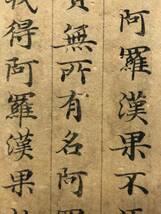 阿羅漢果不
無所有名阿
得阿羅漢果